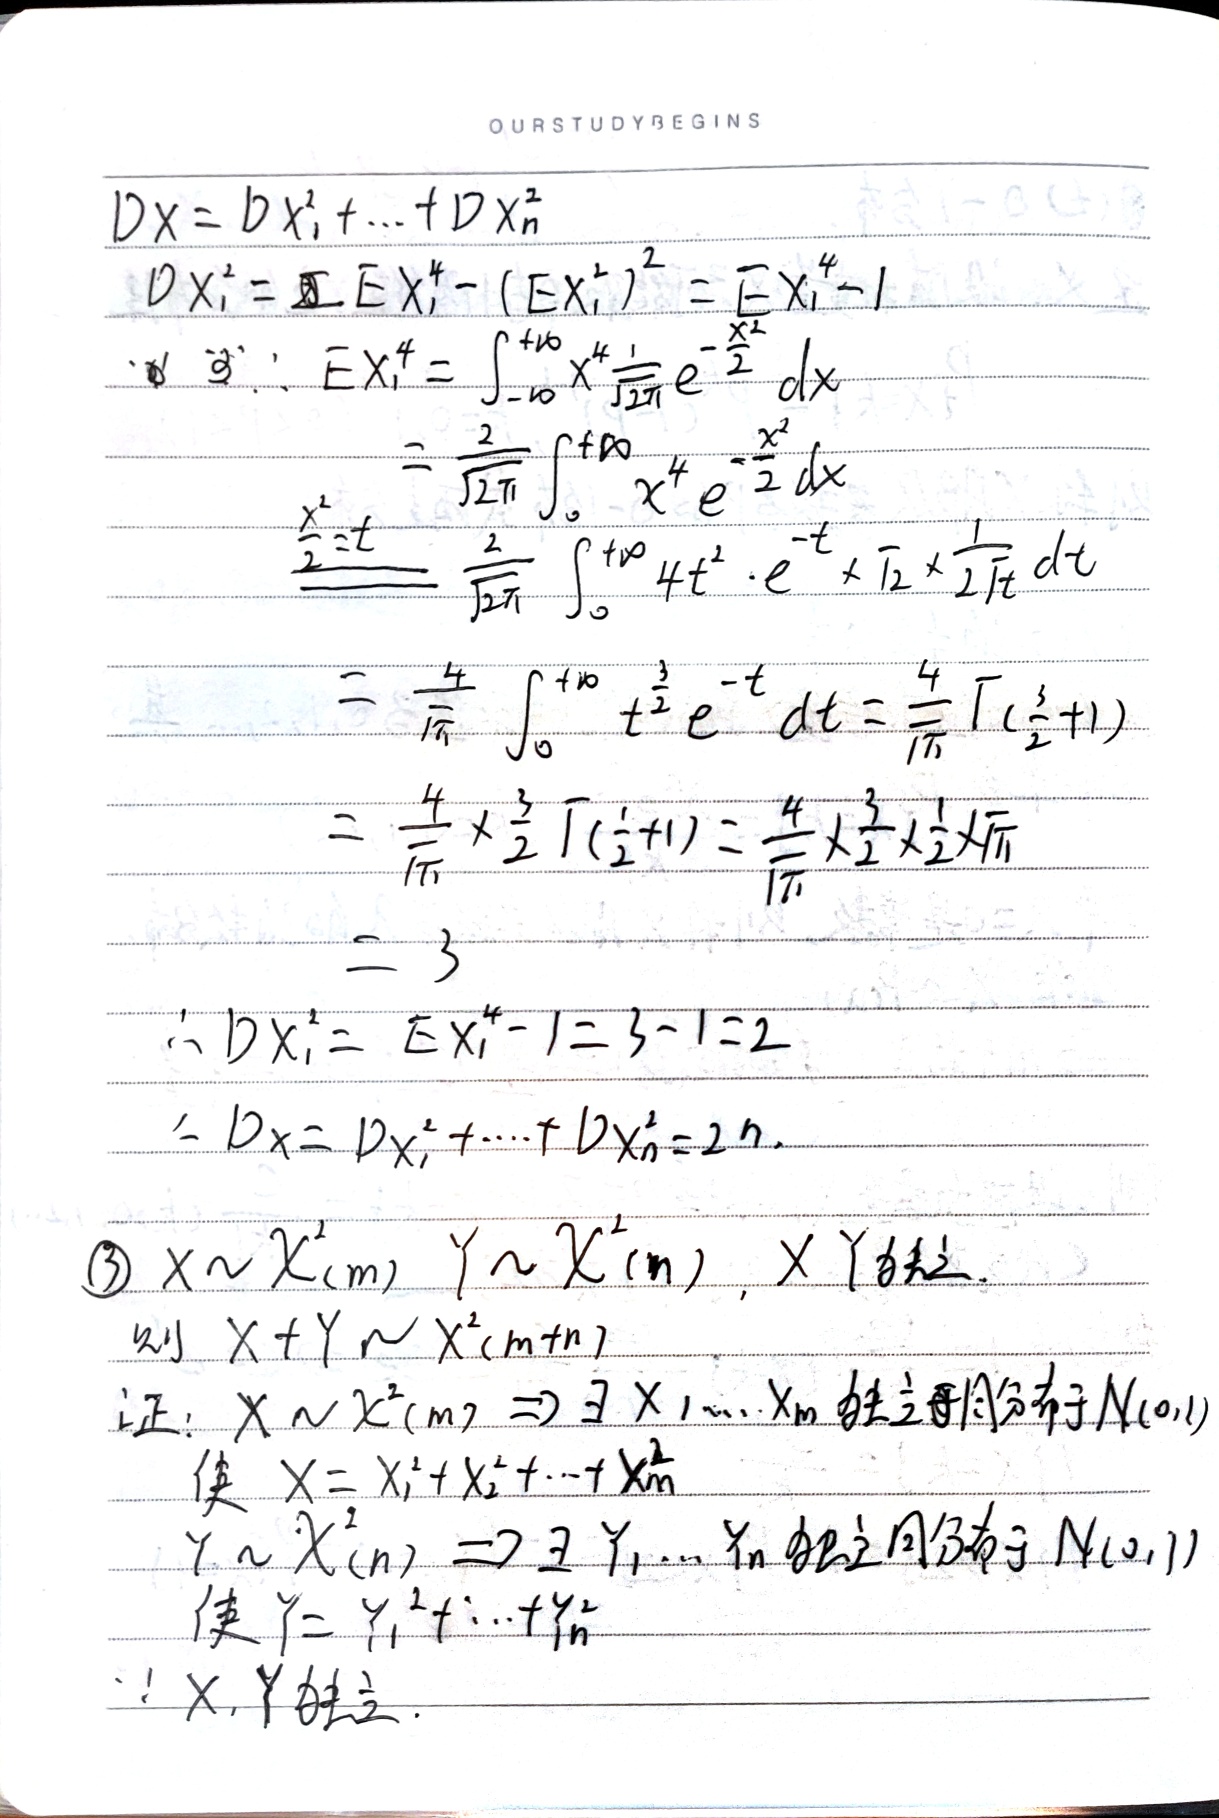 OURSTUDYBEGINS
DX = DX₁² + … + DXₙ²
DX₁² = EX₁⁴ - (EX₁²)² = EX₁⁴ - 1
∵ EX₁⁴ = ∫_{-∞}^{+∞} x⁴ 1/√(2π) e^{-x²/2} dx
= 2/√(2π) ∫₀^{+∞} x⁴ e^{-x²/2} dx
x²/2 = t 2/√(2π) ∫₀^{+∞} 4t² · e^{-t} × √2 × 1/(2√t) dt
= 4/√π ∫₀^{+∞} t^{3/2} e^{-t} dt = 4/√π Γ(3/2+1)
= 4/√π × 3/2 Γ(1/2+1) = 4/√π × 3/2 × 1/2 × √π
= 3
∴ DX₁² = EX₁⁴ - 1 = 3 - 1 = 2
∴ DX = DX₁² + …… + DXₙ² = 2n.
③ X ~ χ²(m) Y ~ χ²(n), X Y独立.
则 X + Y ~ χ²(m+n)
证: X ~ χ²(m) ⇒ ∃ X₁ … Xₘ 独立同分布于 N(0,1)
使 X = X₁² + X₂² + … + Xₘ²
Y ~ χ²(n) ⇒ ∃ Y₁ … Yₙ 独立同分布于 N(0,1)
使 Y = Y₁² + … + Yₙ²
∵ X, Y 独立.